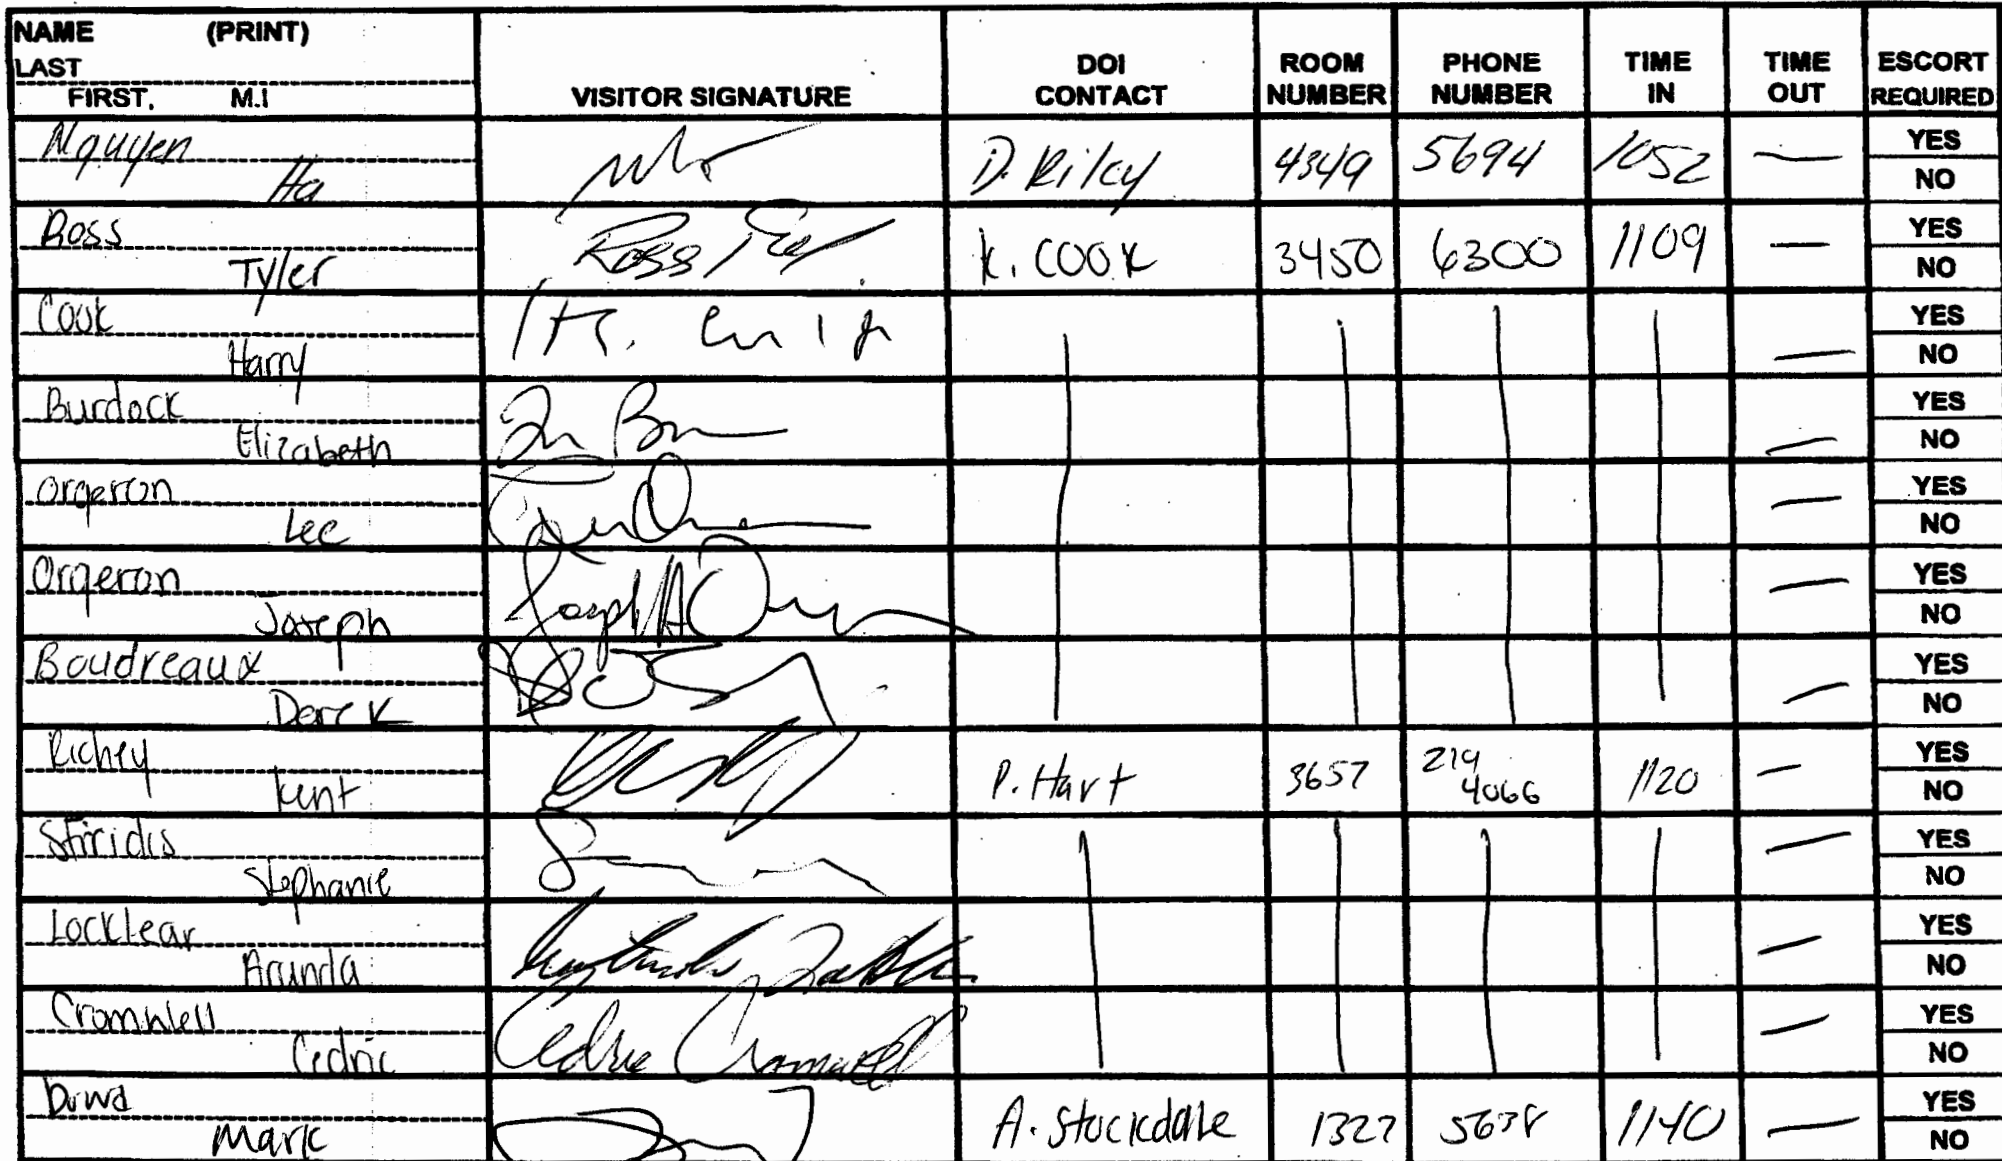 NAME (PRINT)
LAST
FIRST, M.I
VISITOR SIGNATURE
DOI CONTACT
ROOM NUMBER
PHONE NUMBER
TIME IN
TIME OUT
ESCORT REQUIRED
Nguyen
Ha
D. Riley 4349 5694 1052 —
YES
NO
Ross
Tyler
Ross
K. COOK 3450 6300 1109 —
YES
NO
Cook
Harry
—
YES
NO
Burdock
Elizabeth
—
YES
NO
Orgeron
Lee
—
YES
NO
Orgeron
Joseph
Joseph A
—
YES
NO
Boudreaux
Derek
—
YES
NO
Richey
Kent
P. Hart 3657 219 4066 1120 —
YES
NO
Stephanie
—
YES
NO
Locklear
—
YES
NO
Cromwell
Cedric
Cedric Cromwell
—
YES
NO
Mark
A. Stockdale 1327 5638 1140 —
YES
NO